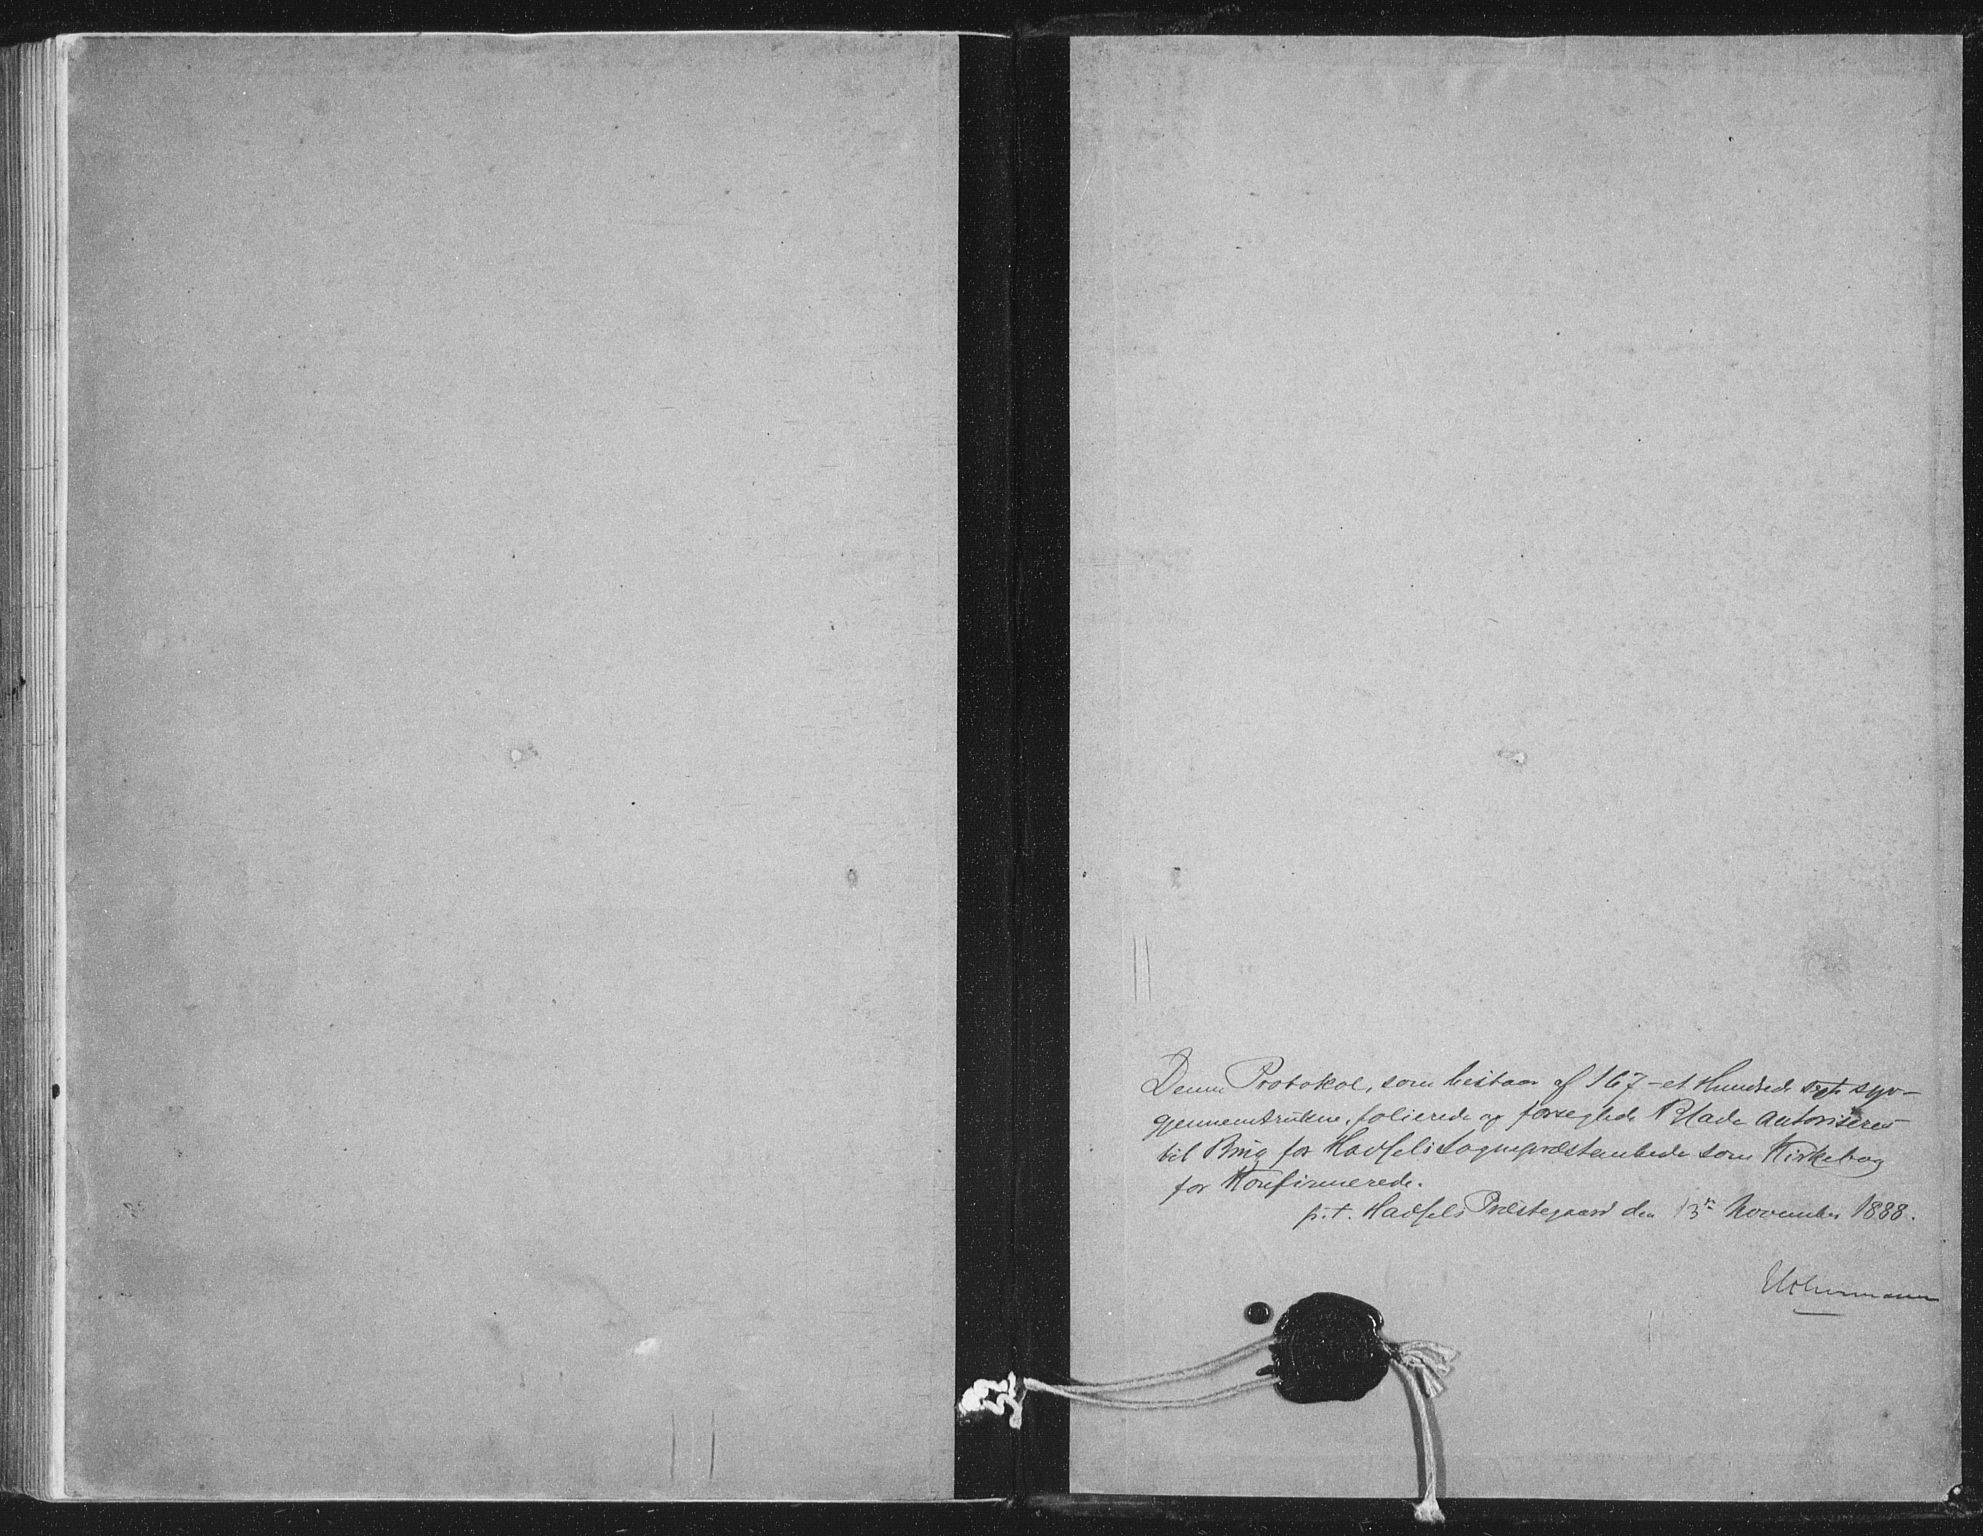 Denne Protokol, som bestaar af 167 - et Hundrede sexti syv -
gjennemtrukne, folierede og forseglede Blade autoriseres
til Brug for Hadsels Sognepræstembede som Kirkebog
for Konfirmerede.
p. t. Hadsels Præstegaard den 13de November 1888.